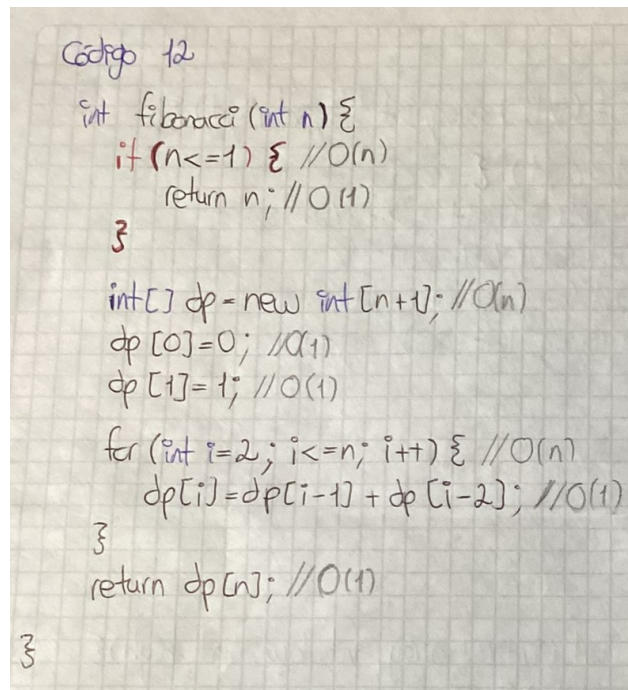 Código 12
int fibonacci (int n) {
if (n<=1) { //O(n)
return n; //O(1)
}
int[] dp = new int [n+1]; //O(n)
dp [0]=0; //O(1)
dp [1]=1; //O(1)
for (int i=2; i<=n; i++) { //O(n)
dp[i]=dp[i-1] + dp [i-2]; //O(1)
}
return dp[n]; //O(1)
}